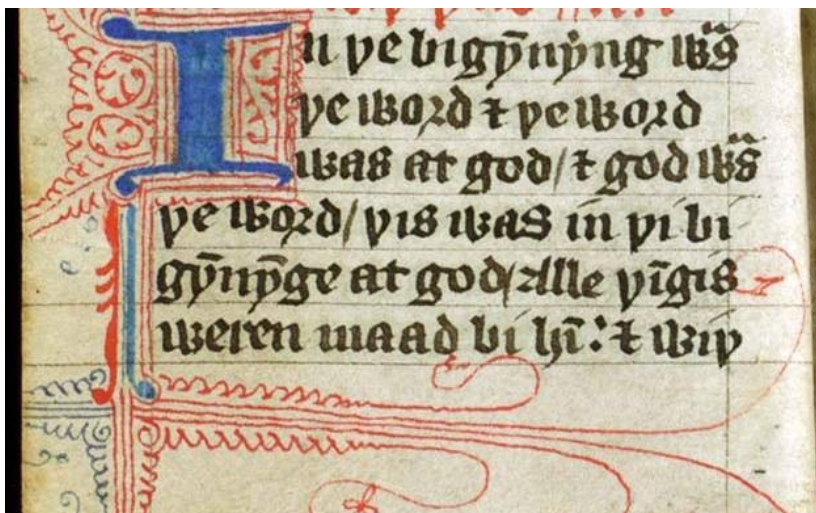 In þe bigyn̄nyng wᵃs
þe word ⁊ þe word
was at god/ ⁊ god wᵃs
þe word/ þis was in þi bi
gyn̄nyn̄ge at god/ Alle þīgis
weren maad bi hī: ⁊ wiþ